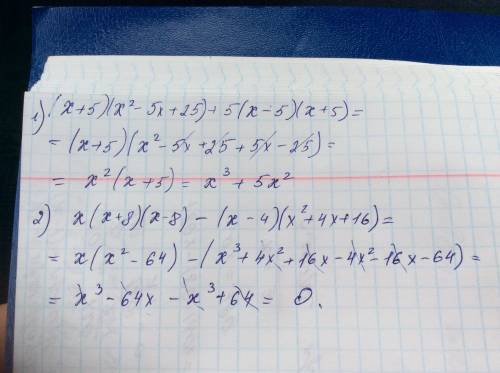 1) (x+5)(x²-5x+25)+5(x-5)(x+5)=
=(x+5)(x²-5x+25+5x-25)=
= x²(x+5)= x³+5x²
2) x(x+8)(x-8)-(x-4)(x²+4x+16)=
=x(x²-64)-(x³+4x²+16x-4x²-16x-64)=
=x³-64x-x³+64= 0.